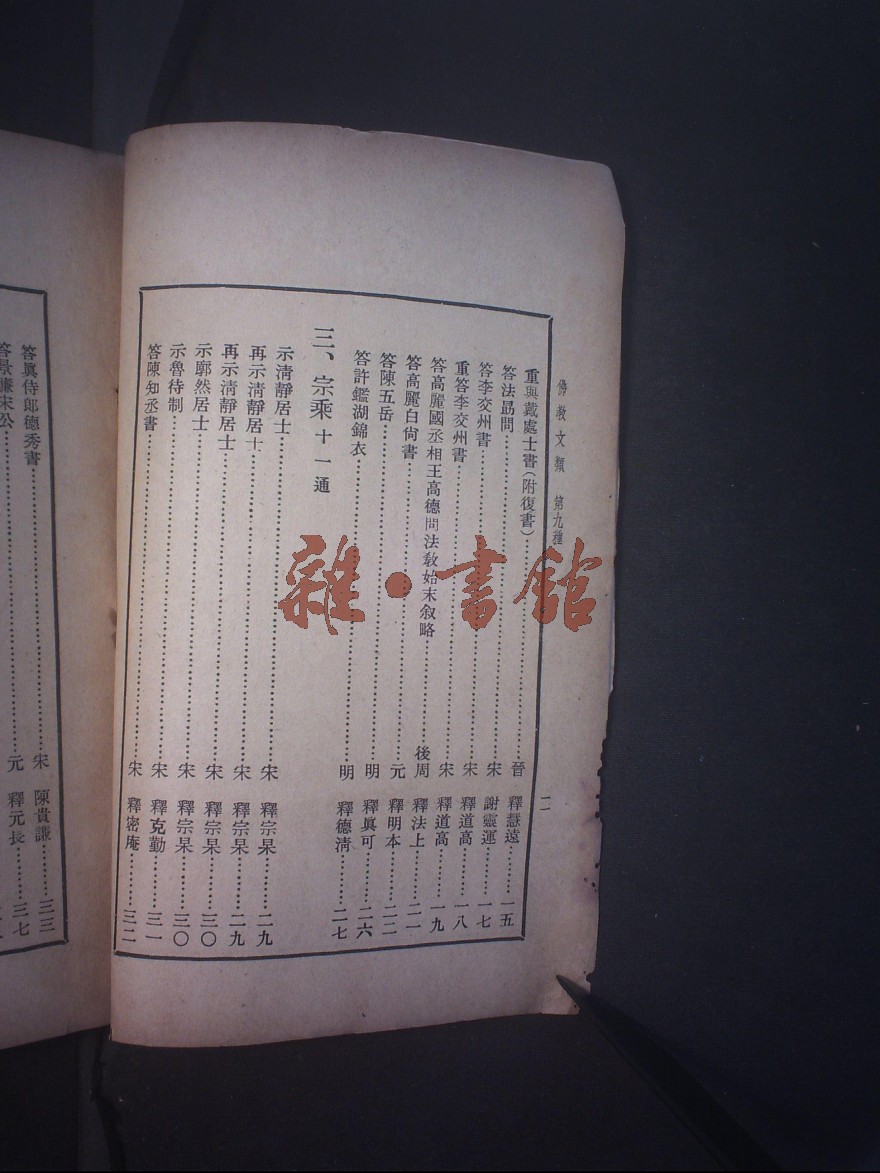 佛教文類　第九種
二
重與戴處士書（附復書）……晉　釋慧遠……一五
答法勗問……宋　謝靈運……一七
答李交州書……宋　釋道高……一八
重答李交州書……宋　釋道高……一九
答高麗國丞相王高德問法敎始末叙略……後周　釋法上……二一
答高麗白尙書……元　釋明本……二二
答陳五岳……明　釋眞可……二六
答許鑑湖錦衣……明　釋德淸……二七
三、宗乘　十一通
示淸靜居士……宋　釋宗杲……二九
再示淸靜居士……宋　釋宗杲……二九
再示淸靜居士……宋　釋宗杲……三〇
示廓然居士……宋　釋宗杲……三〇
示魯待制……宋　釋克勤……三一
答陳知丞書……宋　釋密庵……三二
答眞侍郎德秀書……宋　陳貴謙……三三
答景廉宋公……元　釋元長……三七
雜·書館